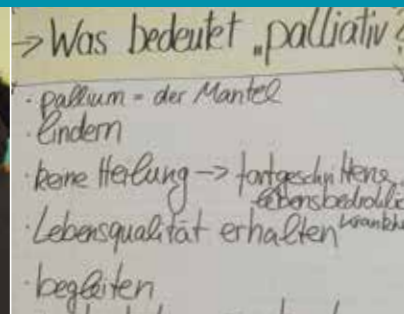 → Was bedeutet „palliativ?
· pallium = der Mantel
· lindern
· keine Heilung → fortgeschrittene,
lebensbedrohlic
· Lebensqualität erhalten Krankh
· begleiten